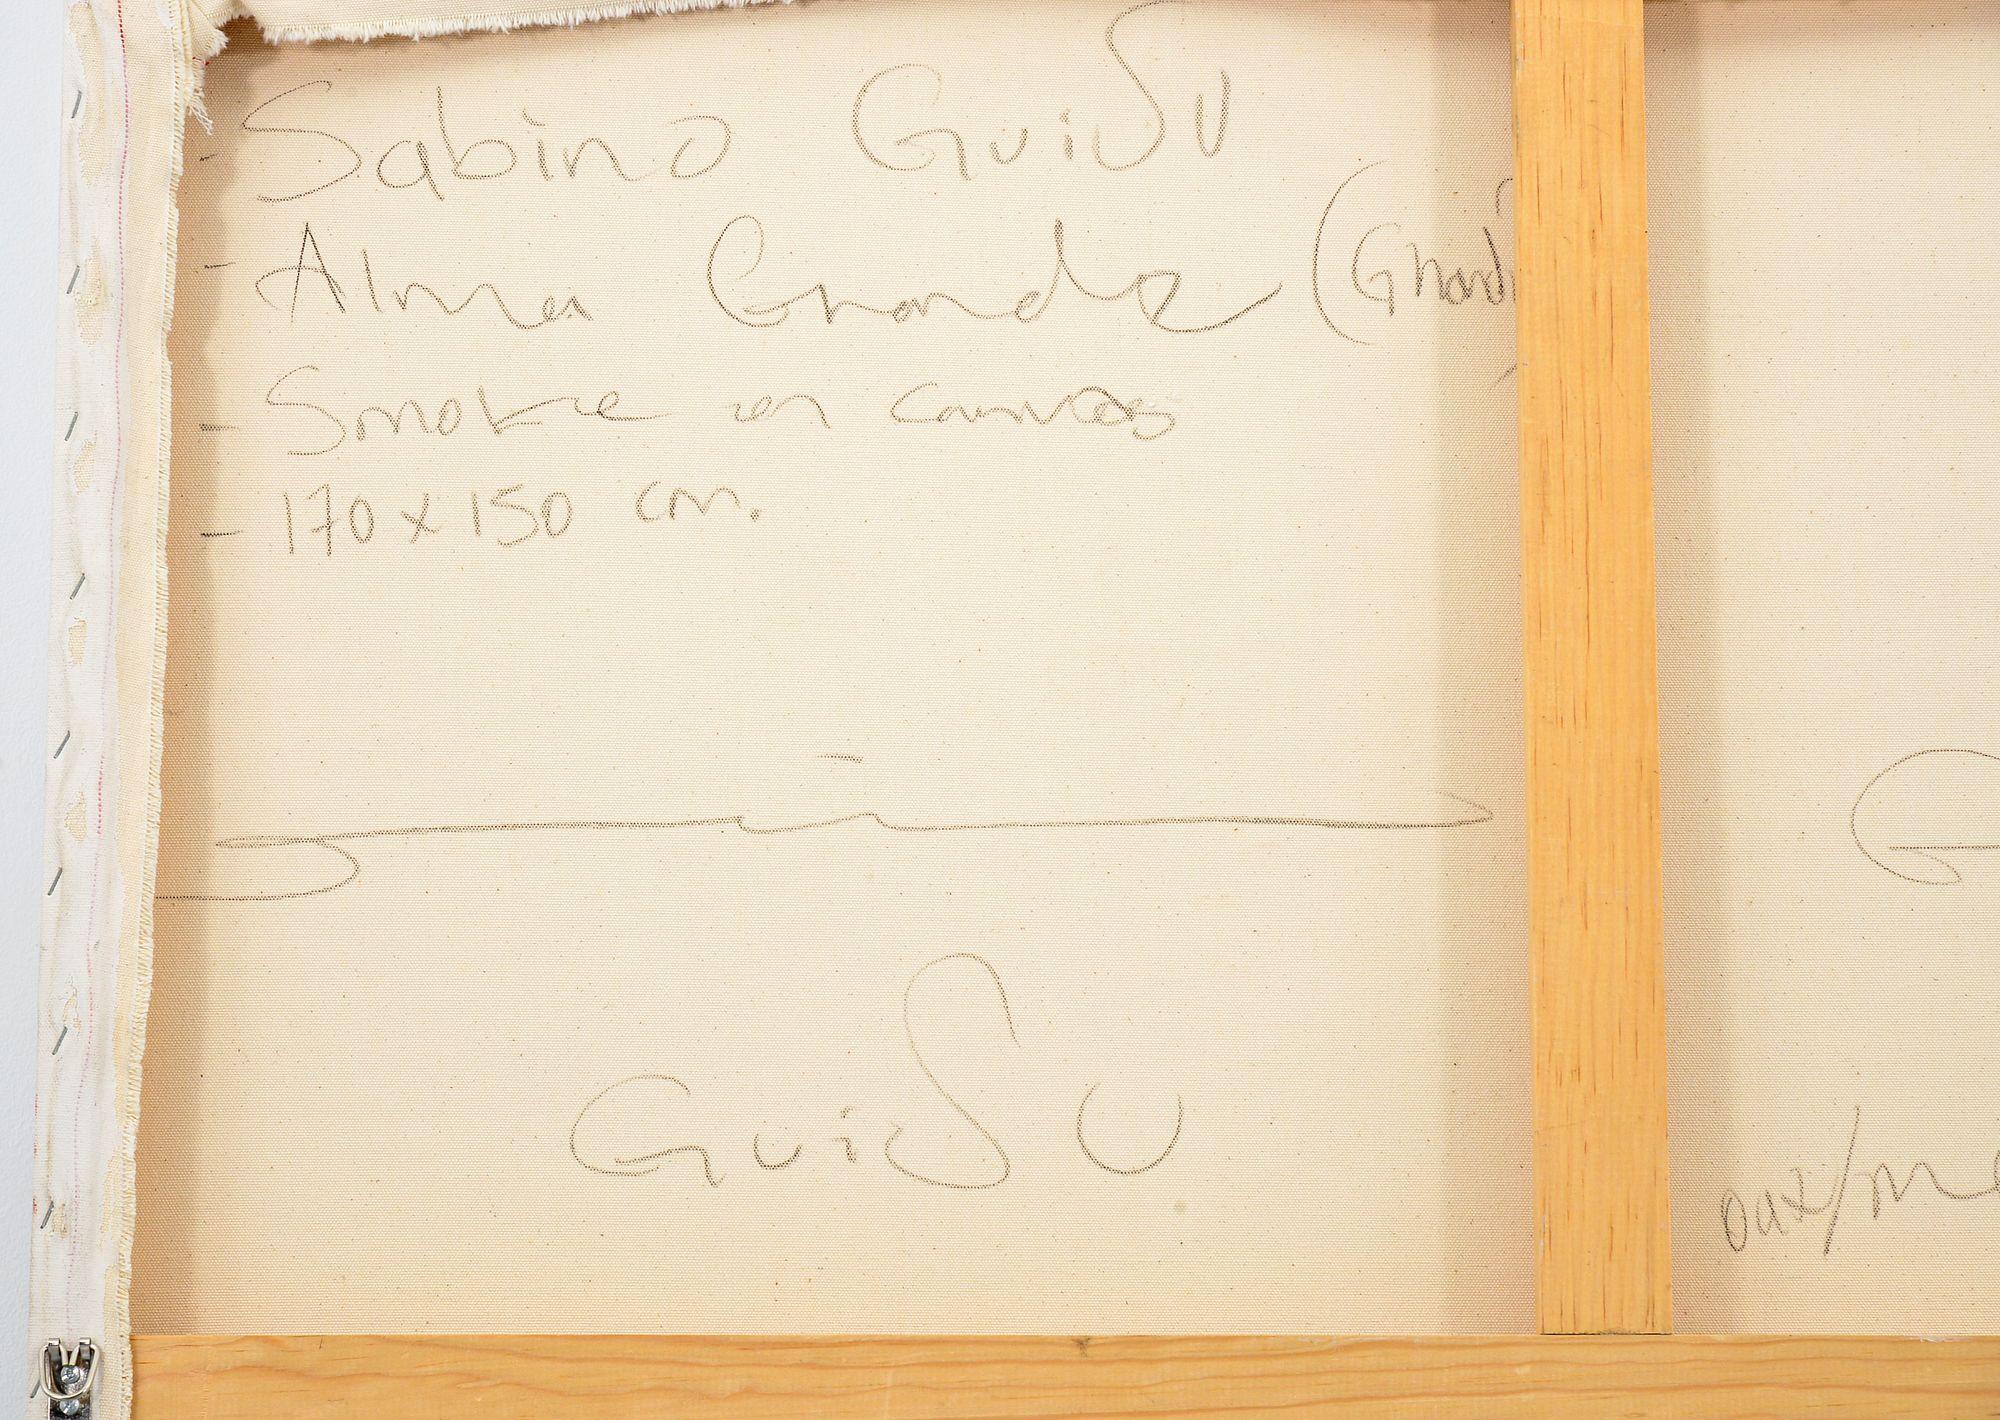 - Sabino Guisu
- Alma Grande
- Smoke on canvas
- 170 x 150 cm.
Guisu
oax/me